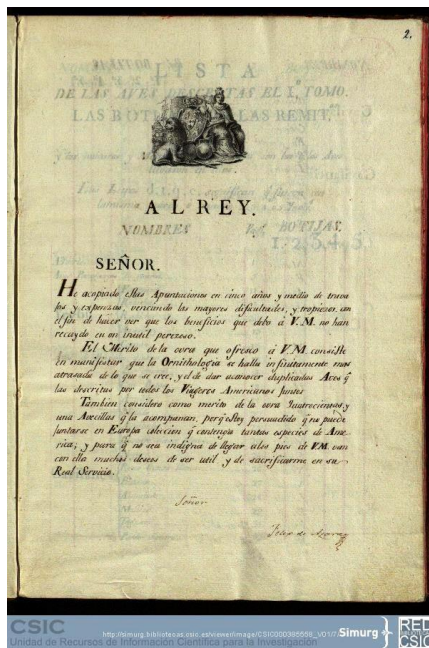 2.
LISTA
DE LAS AVES DESCRITAS EL I, TOMO.
LAS REMIT.
AL REY.
NOMBRES
BOTIJAS.
1. 2, 3, 4, 5,
SEÑOR.
He acopiado estas Apuntaciones en cinco años y medio de traba
jos y expensas, venciendo las mayores dificultades, y tropiezos, con
el fin de hacer ver que los beneficios que debo á V.M. no han
recaydo en un inutil perezoso.
El Merito de la obra que ofresco á V.M. consiste
en manifestar que la Ornithologia se halla infinitamente mas
atrasada de lo que se cree; y el de dar aconocer duplicadas Aves q̃
las descritas por todos los Viageros Americanos juntos
Tambien considero como merito de la obra quatrocientas, y
una Avecillas q̃ la acompañan, porq̃ estoy persuadido q̃ no puede
juntarse en Europa colección q̃ contenga tantas especies de Ame
rica; y para q̃ no sea indigna de llegar alos pies de V.M. van
con ella muchos deseos de ser util y de sacrificarme en su
Real Servicio.
Señor
Felix de Azara
CSIC
Unidad de Recursos de Información Científica para la Investigación
Simurg
RED
CSIC